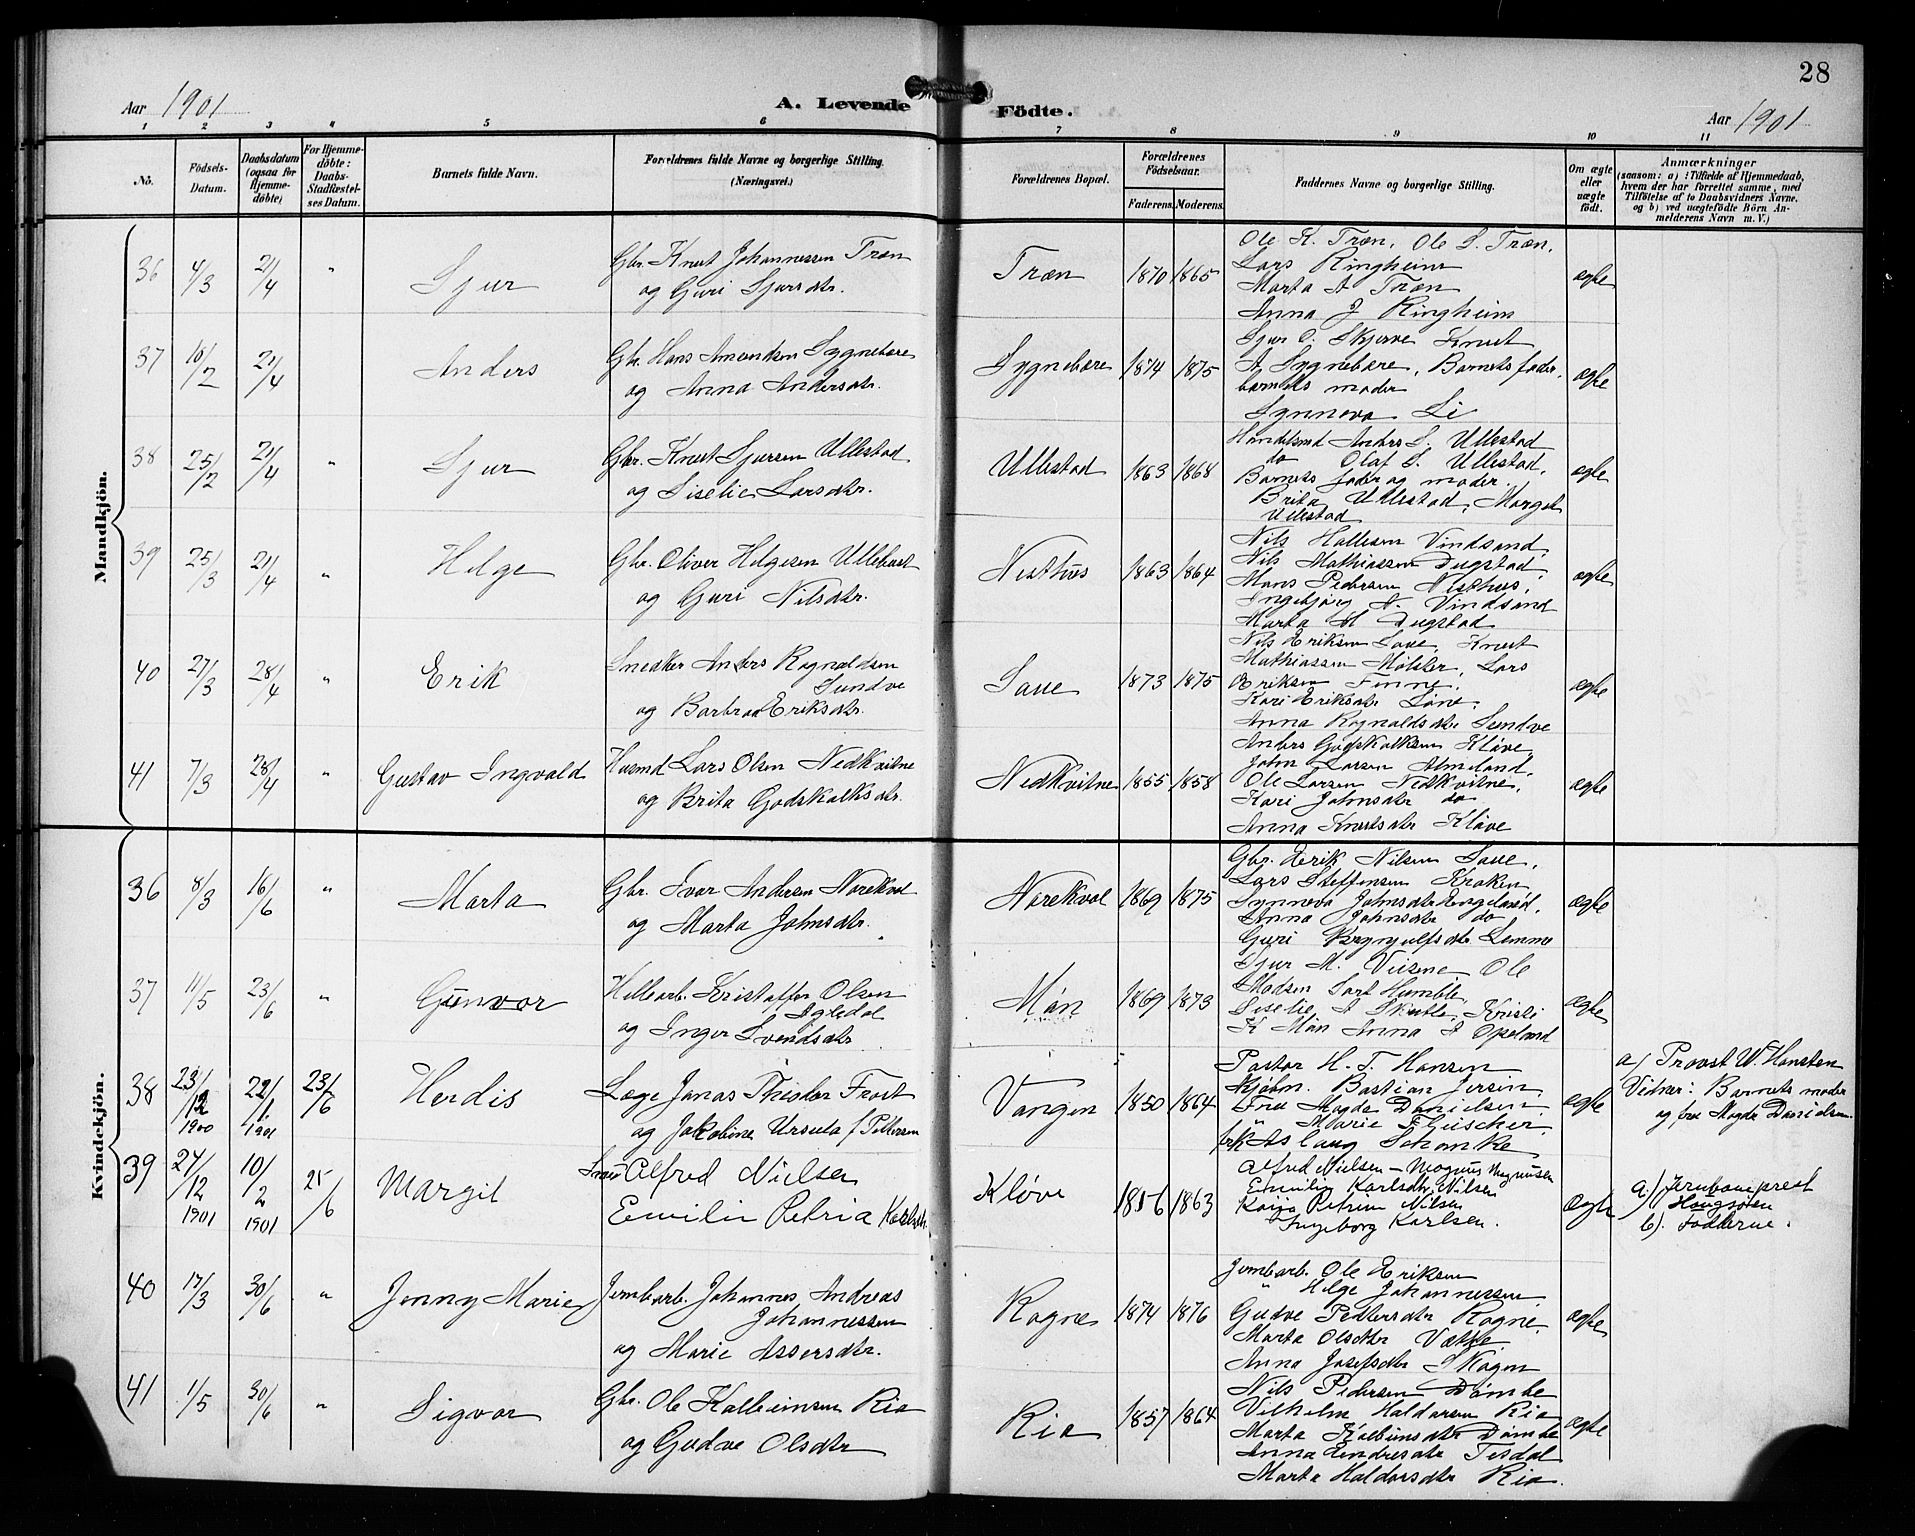 28
Aar 1901
A. Levende Födte.
Aar 1901
1 2 3 4 5 6 7 8 9 10 11
No.
Födsels-Datum.
Daabsdatum (ogsaa for Hjemme-döbte)
For Hjemme-döbte: Daabs-Stadfæstel-ses Datum.
Barnets fulde Navn.
Forældrenes fulde Navne og borgerlige Stilling. (Næringsvei.)
Forældrenes Bopæl.
Forældrenes Födselsaar.
Faderens. Moderens.
Faddernes Navne og borgerlige Stilling.
Om ægte eller uægte födt.
Anmærkninger
(saasom: a) i Tilfælde af Hjemmedaab,
hvem der har forrettet samme, med
Tilföielse af to Daabsvidners Navne.
og b) ved uægtefödte Börn An-
melderens Navn m. V.)
Mandkjön.
36 4/3 21/4 " Sjur
Gbr. Knut Johannessen Træn
og Guri Sjursdtr.
Træn 1870 1865
Ole K. Træn, Ole S. Træn,
Lars Ringheim
Marta A Træn
Anna J Ringheim
ægte
37 16/2 21/4 Anders
Gbr. Hans Amundsen Sygnebære
og Anna Andersdtr.
Sygnebære 1874 1875
Sjur O. Skjerve Knut
A Sygnebære, Barnets fader,
barnets moder
Synneva Li
ægte
38 25/2 21/4 " Sjur
Gbr. Knut Sjursen Ullestad
og Siselie Larsdtr.
Ullestad 1863 1868
Handelsmd Anders S. Ullestad
do Olaf S. Ullestad,
Barnets fader og moder.
Brita Ullestad, Marget
Ullestad
ægte
39 25/3 21/4 " Helge
Gbr. Oliver Helgesen
og Guri Nilsdtr.
Nesthus 1863 1864
Nils Hallesen Vindsand,
Nils Mathiassen Dugstad
Hans Pedersen Nesthus,
Ingebjörg N. Vindsand
Marta M Dugstad
ægte
40 27/3 28/4 " Erik
Snedker Anders Ragnaldsen
Sundve
og Barbra Eriksdtr.
Saue 1873 1875
Nils Eriksen Saue, Knut
Mathiassen Mölster, Lars
Eriksen Finne,
Kari Eriksdtr
Anna Ragnaldsdtr Sundve
ægte
41 7/3 28/4 " Gustav Ingvald
Husmd Lars Olsen Nedkvitne
og Brita Godskalksdtr.
Nedkvitne 1855 1858
Anders Godskalksen Klöve,
John Larsen Almeland,
Ole Larsen Nedkvitne,
Kari Johnsdtr do
Anna Knutsdtr Klöve
ægte
Kvindekjön.
36 8/3 16/6 " Marta
Gbr. Ivar Andersen Norekval
og Marta Johnsdtr.
Norekval 1869 1875
Gbr. Eerik Nilsen Saue,
Lars Steffensen Kroken
Synneva Johnsdtr Engeland,
Anna Johnsdtr do
Guri Brynjulfsdtr. Lemme
ægte
37 11/5 23/6 " Gunvor
Hellearb. Kristoffer Olsen
Ygledal
og Inger Svendsdtr
Mön 1869 1873
Sjur M. Vinsne Ole
Madsen Sort Humble,
Siselie A Skutle, Kristi
K Mön Anna S Opeland
ægte
38 23/12 1900 22/1 1901 23/6 Herdis
Læge Jonas Thester Frost
og Jakobine Ursula f. Pettersen
Vangen 1850 1864
Pastor H. T. Hansen
Kjöbm. Bastian Jersin
Fru Magda Danielsen
" Marie Fleischer,
frk Aslaug Schanke
ægte
a) Provst W. Hansten
Vidner: Barnets moder
og fru Magda Danielsen
39 27/12 1901 10/2 1901 25/6 Margit
Alfred Nielsen
Emilie Petria Karlsdtr.
Klöve 1856 1863
Alfred Nielsen – Magnus Magnussen
Emilie Karlsdtr. Nilsen
Kaja Petrine Nilsen
Ingeborg Karlsen.
ægte
a) Jernbanepræst
Haugsöen
b). Fadderne.
40 17/3 30/6 " Jenny Marie
Jernbarb. Johannes Andreas
Johannessen
og Marie Assersdtr.
Rogne 1874 1876
Jernbarb. Ole Eriksen
" Helge Johannessen
Gudve Pedersdtr Rogne,
Marta Olsdtr Vætte,
Anna Josefsdtr Skogen
ægte
41 1/5 30/6 " Sigvor
Gbr. Ole Kolbeinsen Rio
og Gudve Olsdtr
Rio 1857 1864
Nils Pedersen Dömbe
Vilhelm Haldorsen Rio
Marta Kolbeinsdtr Dömbe
Anna Endresdtr Tesdal
Marta Haldorsdtr Rio.
ægte